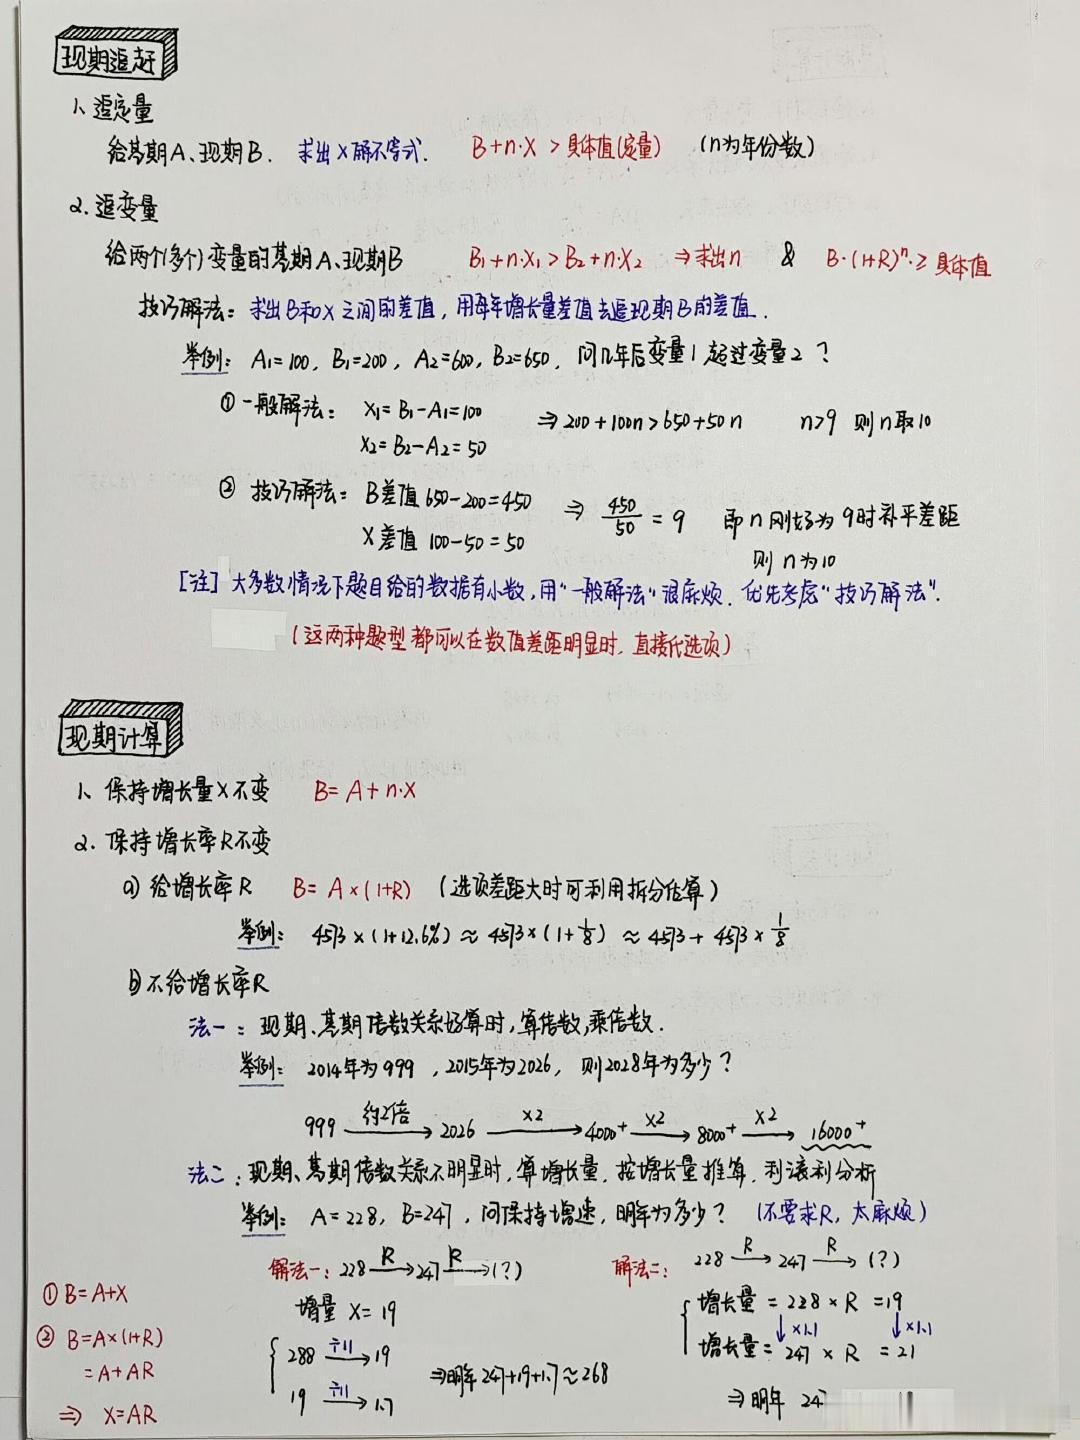 现期追赶
1、追定量
给基期A、现期B. 求出X解不等式. B+n·X > 具体值(定量) (n为年份数)
2. 追变量
给两个(多个)变量的基期A、现期B B₁+n·X₁>B₂+n·X₂ ⇒求出n & B·(1+R)ⁿ·≥具体值
技巧解法: 求出B和X之间的差值, 用每年增长量差值去追现期B的差值.
举例: A₁=100, B₁=200, A₂=600, B₂=650, 问几年后变量1超过变量2?
①一般解法: X₁=B₁-A₁=100 ⇒200+100n>650+50n n>9 则n取10
X₂=B₂-A₂=50
② 技巧解法: B差值 650-200=450 ⇒ 450/50 = 9 即n刚好为9时补平差距
X差值 100-50=50 则n为10
[注] 大多数情况下题目给的数据有小数, 用"一般解法"很麻烦. 优先考虑"技巧解法".
(这两种题型都可以在数值差距明显时, 直接代选项)
现期计算
1、保持增长量X不变 B=A+n·X
2. 保持增长率R不变
a) 给增长率R B=A×(1+R) (选项差距大时可利用拆分估算)
举例: 4573×(1+12.6%)≈4573×(1+1/8)≈4573+4573×1/8
b)不给增长率R
法一: 现期、基期倍数关系好算时,算倍数,乘倍数.
举例: 2014年为999, 2015年为2026, 则2028年为多少?
999 约2倍→ 2026 ×2→ 4000⁺ ×2→ 8000⁺ ×2→ 16000⁺
法二: 现期、基期倍数关系不明显时, 算增长量, 按增长量推算, 利滚利分析
举例: A=228, B=247, 问保持增速, 明年为多少? (不要求R, 太麻烦)
解法一: 228 R→ 247 R→ (?) 解法二: 228 R→ 247 R→ (?)
增量 X=19 增长量=228×R=19
288 ÷11→ 19 ↓×1.1 ↓×1.1
19 ÷11→ 1.7 增长量=247×R=21
⇒明年247+19+1.7≈268 ⇒明年 247
①B=A+X
②B=A×(1+R)
=A+AR
⇒ X=AR